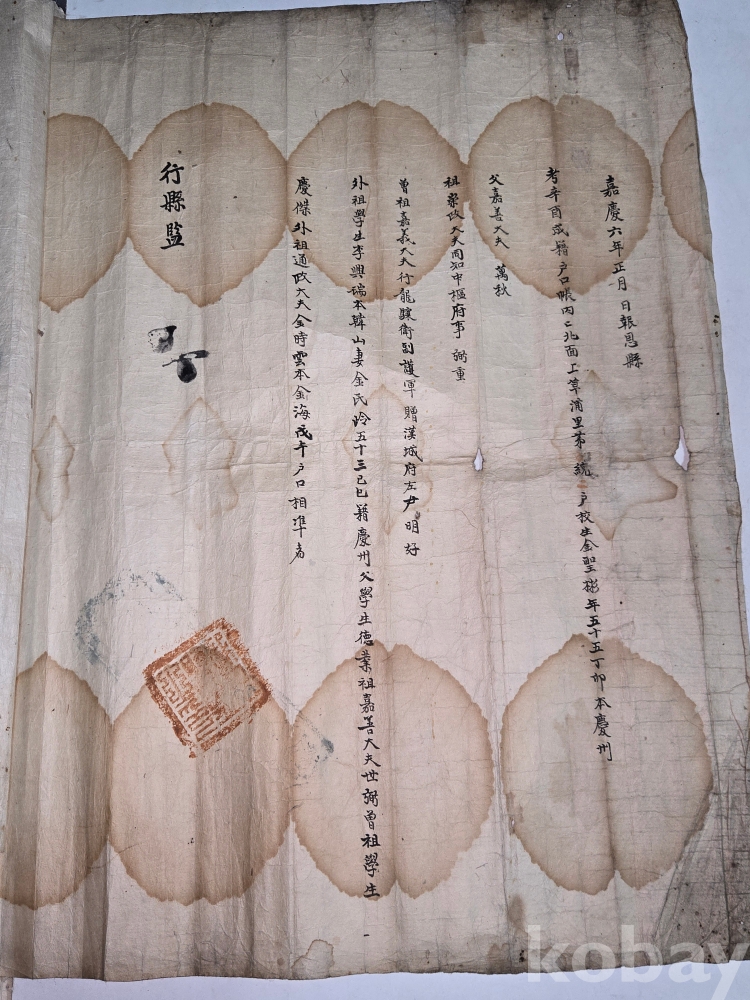 嘉慶六年正月 日報恩縣
考辛酉成籍户口帳內 北面上草浦里第 統 户校生金聖彬年五十五丁卯本慶州
父嘉善大夫 萬秋
祖崇政大夫同知中樞府事 弼重
曾祖嘉義大夫行龍驤衛副護軍 贈漢城府左尹 明好
外祖學生李興瑞本韓山妻金氏齡五十三己巳籍慶州父學生德業祖嘉善大夫世弼曾祖學生
慶傑外祖通政大夫金時雲本金海戊午户口相準者
行縣監
kobay